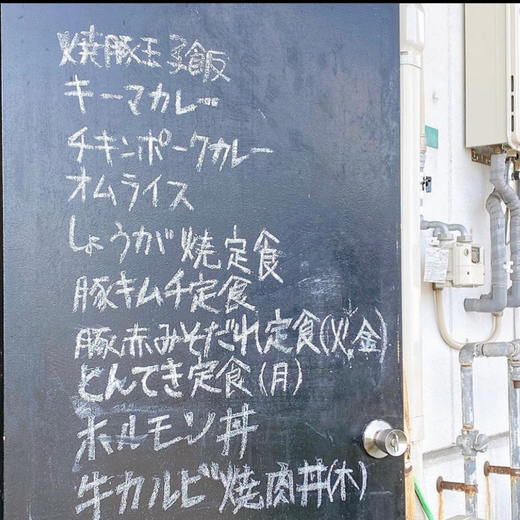 焼豚玉子飯
キーマカレー
チキンポークカレー
オムライス
しょうが焼定食
豚キムチ定食
豚赤みそだれ定食(火,金)
とんてき定食(月)
ホルモン丼
牛カルビ焼肉丼(木)